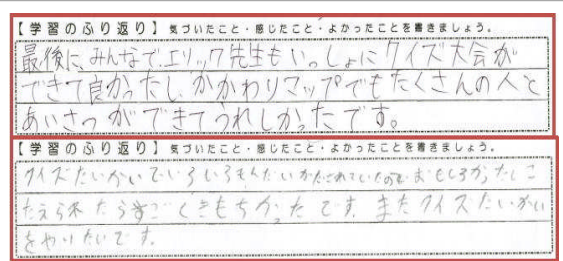 【学習のふり返り】 気づいたこと・感じたこと・よかったことを書きましょう。
最後に、みんなで、エリック先生もいっしょにクイズ大会が
できて良かったし、かかわりマップでもたくさんの人と
あいさつができてうれしかったです。
【学習のふり返り】 気づいたこと・感じたこと・よかったことを書きましょう。
クイズたいかいでいろいろもんだいがだされていたのもおもしろかったしこ
たえられたらすごくきもちかったです。またクイズたいかい
をやりたいです。